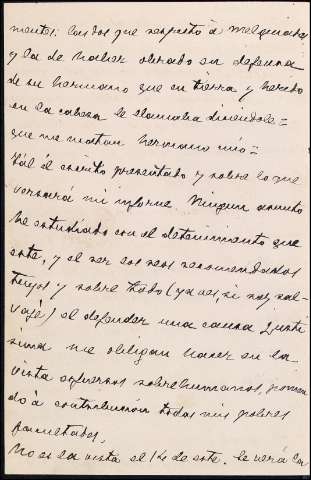 mentos: los dos que respecto á Melquiades
y la de haber obrado en defensa
de su hermano que en tierra y herido
en la cabeza le llamaba diciendole =
que me matan hermano mio =
Tál el escrito presentado y sobre lo que
versará mi informe. Ningun asunto
he estudiado con el detenimiento que
este, y el ser los reos recomendados
tuyos y sobre todo (ya ves, si soy sal-
vaje) el defender una causa justi
sima me obligan hacer en la
vista esfuerzos sobrehumanos, ponien
do á contribución todas mis pobres
facultades.
No es la vista el 14 de este. Se verá la